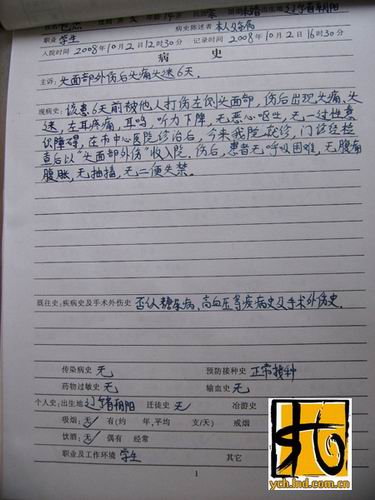 职业 学生 病史陈述者 本人及家属
入院时间 2008年10月2日12时30分 记录时间 2008年10月2日16时30分
病 史
主诉: 头面部外伤后头痛头迷6天.
现病史: 该患6天前被他人打伤左侧头面部, 伤后出现头痛、头
迷, 左耳疼痛, 耳鸣, 听力下降, 无恶心呕吐, 无一过性意
识障碍, 在市中心医院诊治后, 今来我院就诊, 门诊经检
查后以"头面部外伤"收入院. 伤后, 患者无呼吸困难, 无腹痛
腹胀, 无抽搐, 无二便失禁.
既往史: 疾病史及手术外伤史 否认糖尿病、高血压等疾病史及手术外伤史.
传染病史 无 预防接种史 正常接种
药物过敏史 无 输血史 无
个人史: 出生地 辽宁省朝阳 迁徙史 无 冶游史
吸烟: 无 有(约 年,平均 支/天) 戒烟
饮酒: 无 偶有 经常
职业及工作环境 学生 其它
1
ych.lnd.com.cn